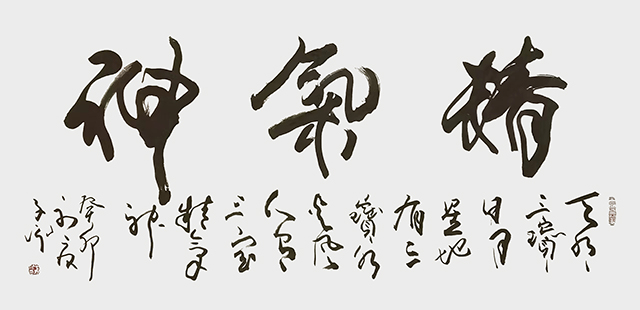 精氣神
天有
三寶
日月
星地
有三
寶水
火風
人有
三宝
精氣
神
癸卯
初夏